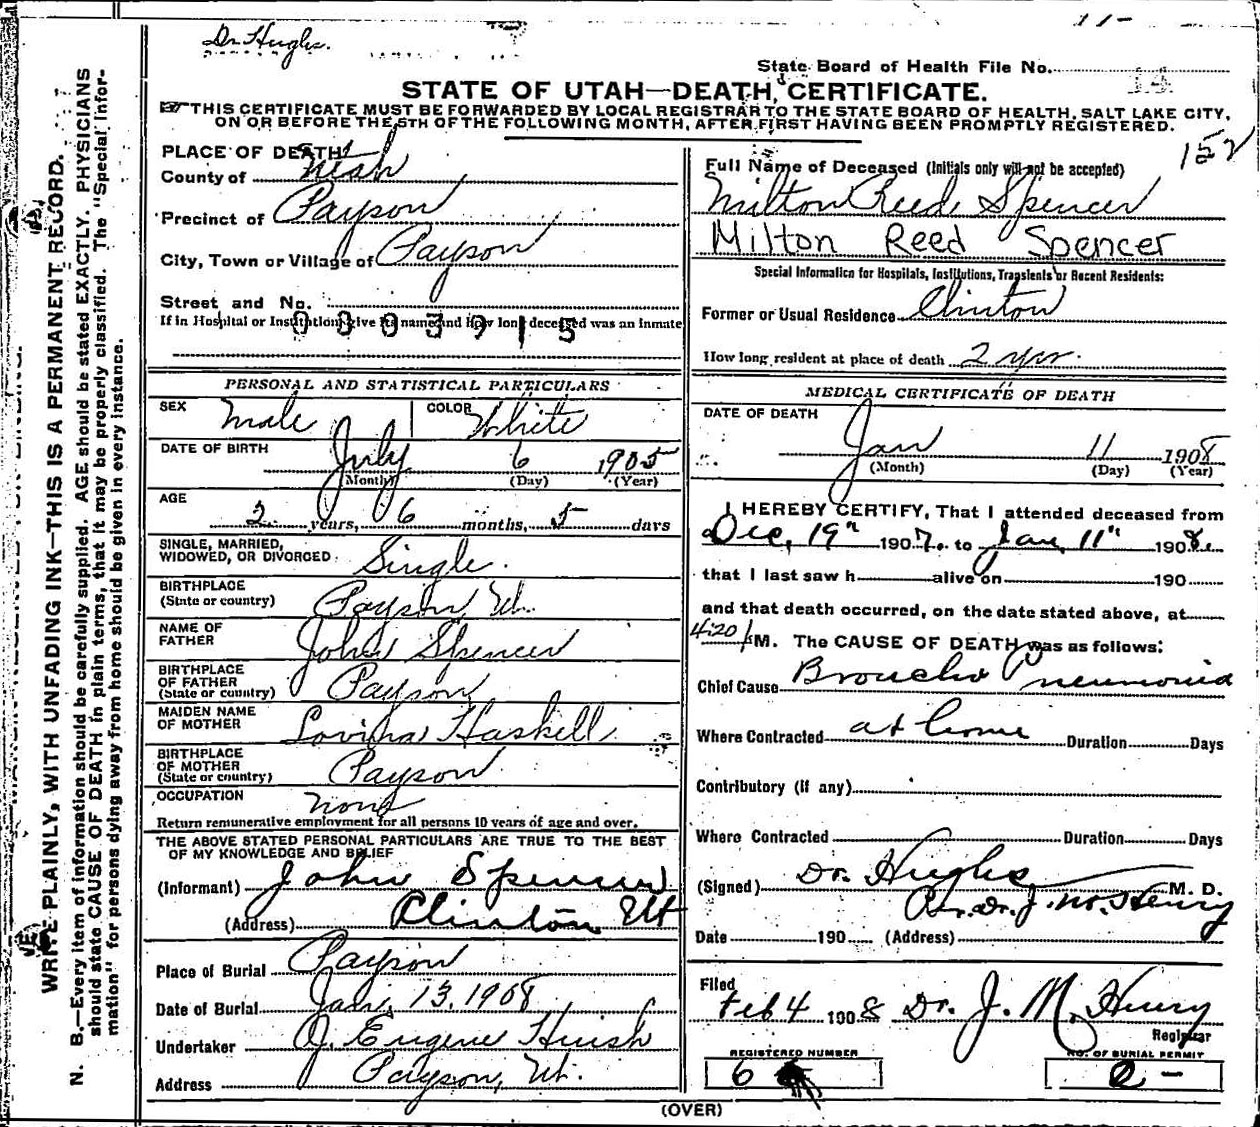 Dr Hughs.
11-
State Board of Health File No. 14
STATE OF UTAH—DEATH CERTIFICATE.
THIS CERTIFICATE MUST BE FORWARDED BY LOCAL REGISTRAR TO THE STATE BOARD OF HEALTH, SALT LAKE CITY,
ON OR BEFORE THE 5TH OF THE FOLLOWING MONTH, AFTER FIRST HAVING BEEN PROMPTLY REGISTERED.
152
WRITE PLAINLY, WITH UNFADING INK—THIS IS A PERMANENT RECORD.
N. B.—Every item of information should be carefully supplied. AGE should be stated EXACTLY. PHYSICIANS
should state CAUSE OF DEATH in plain terms, that it may be properly classified. The "Special Infor-
mation" for persons dying away from home should be given in every instance.
PLACE OF DEATH
County of Utah
Precinct of Payson
City, Town or Village of Payson
Street and No.
If in Hospital or Institution, give its name and how long deceased was an inmate
0003915
PERSONAL AND STATISTICAL PARTICULARS
SEX Male COLOR White
DATE OF BIRTH July 6 1905
(Month) (Day) (Year)
AGE 2 years, 6 months, 5 days
SINGLE, MARRIED,
WIDOWED, OR DIVORCED Single.
BIRTHPLACE
(State or country) Payson, Ut.
NAME OF
FATHER John Spencer
BIRTHPLACE
OF FATHER
(State or country) Payson
MAIDEN NAME
OF MOTHER Lovina Haskell
BIRTHPLACE
OF MOTHER
(State or country) Payson
OCCUPATION none
Return remunerative employment for all persons 10 years of age and over.
THE ABOVE STATED PERSONAL PARTICULARS ARE TRUE TO THE BEST
OF MY KNOWLEDGE AND BELIEF
(Informant) John Spencer
(Address) Clinton Ut
Place of Burial Payson
Date of Burial Jan. 13, 1908
Undertaker O. Eugene Huish
Address Payson, Ut.
Full Name of Deceased (Initials only will not be accepted)
Milton Reed Spencer
Milton Reed Spencer
Special Information for Hospitals, Institutions, Transients or Recent Residents:
Former or Usual Residence Clinton
How long resident at place of death 2 yrs.
MEDICAL CERTIFICATE OF DEATH
DATE OF DEATH
Jan 11 1908
(Month) (Day) (Year)
I HEREBY CERTIFY, That I attended deceased from
Dec, 19" 1907. to Jan, 11" 1908.
that I last saw h alive on 190
and that death occurred, on the date stated above, at
4:20 M. The CAUSE OF DEATH was as follows:
Chief Cause Broncho Pneumonia
Where Contracted at home Duration Days
Contributory (if any)
Where Contracted Duration Days
(Signed) Dr. Hughs M. D.
Per. Dr. J. M. Henry
Date 190 (Address)
Filed
Feb 4 1908 Dr. J. M. Henry
Registrar
REGISTERED NUMBER NO. OF BURIAL PERMIT
6
(OVER)